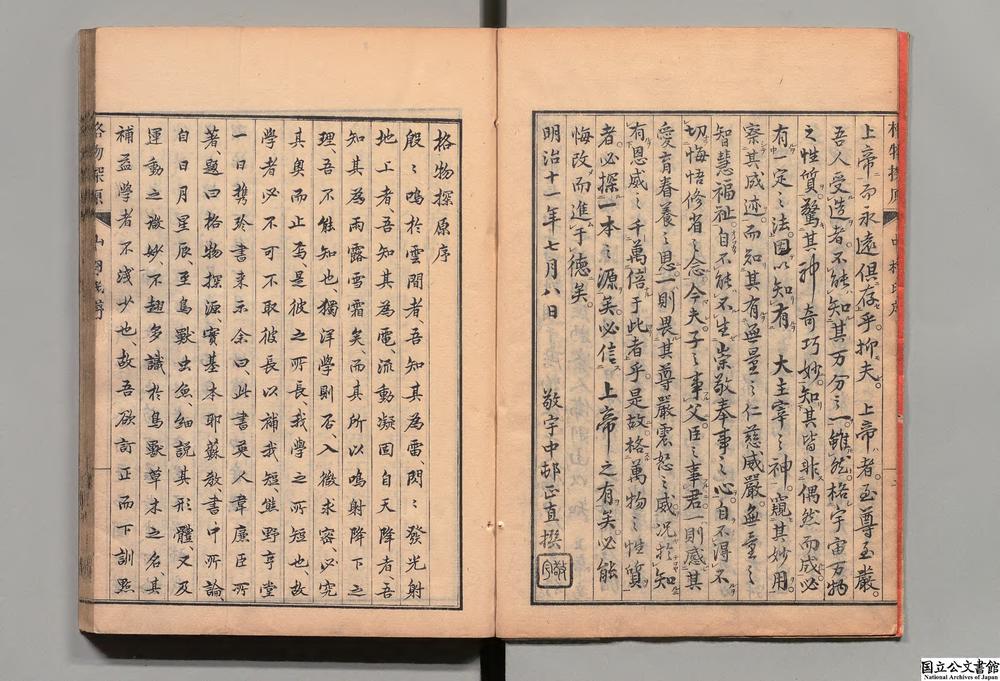 上帝而永遠俱存乎。抑夫。上帝者。至尊至嚴。
吾人受造者。不能知其万分之一。雖然。格宇宙万物
之性質。驚其神奇巧妙。知其皆非偶然而成。必
有一定之法。因以知有 大主宰之神。窺其妙用。
察其成迹。而知其有無量之仁慈威嚴。無量之
智慧福祉。自不能不生崇敬奉事之心。自不得不
切悔悟修省之念。今夫子之事父。臣之事君。一則感其
愛育眷養之恩。一則畏其尊嚴震怒之威。况於知
有恩威之千萬倍于此者乎。是故格萬物之性質
者。必探一本之源矣。必信 上帝之有矣。必能
悔改而進于德矣。
明治十一年七月八日 敬宇中邨正直撰
敬宇
格物探原序
殷々鳴於雲間者、吾知其為雷、閃々發光射
地上者、吾知其為電、流動凝固自天降者、吾
知其為雨露雪霜矣、而其所以鳴射降下之
理、吾不能知也、獨洋學則否、入微求密、必究
其奥而止焉、是彼之所長、我學之所短也、故
學者必不可不取彼長以補我短、熊野亨堂
一日携珍書来示余曰、此書英人韋廉臣所
著、題曰格物探源、實基本耶蘇教書中所論、
自日月星辰至鳥獸虫魚、細說其形體、又及
運動之微妙、不趐多識於鳥獸草木之名、其
補益學者不淺少也、故吾欲訂正而下訓點
格物探原
国立公文書館
National Archives of Japan